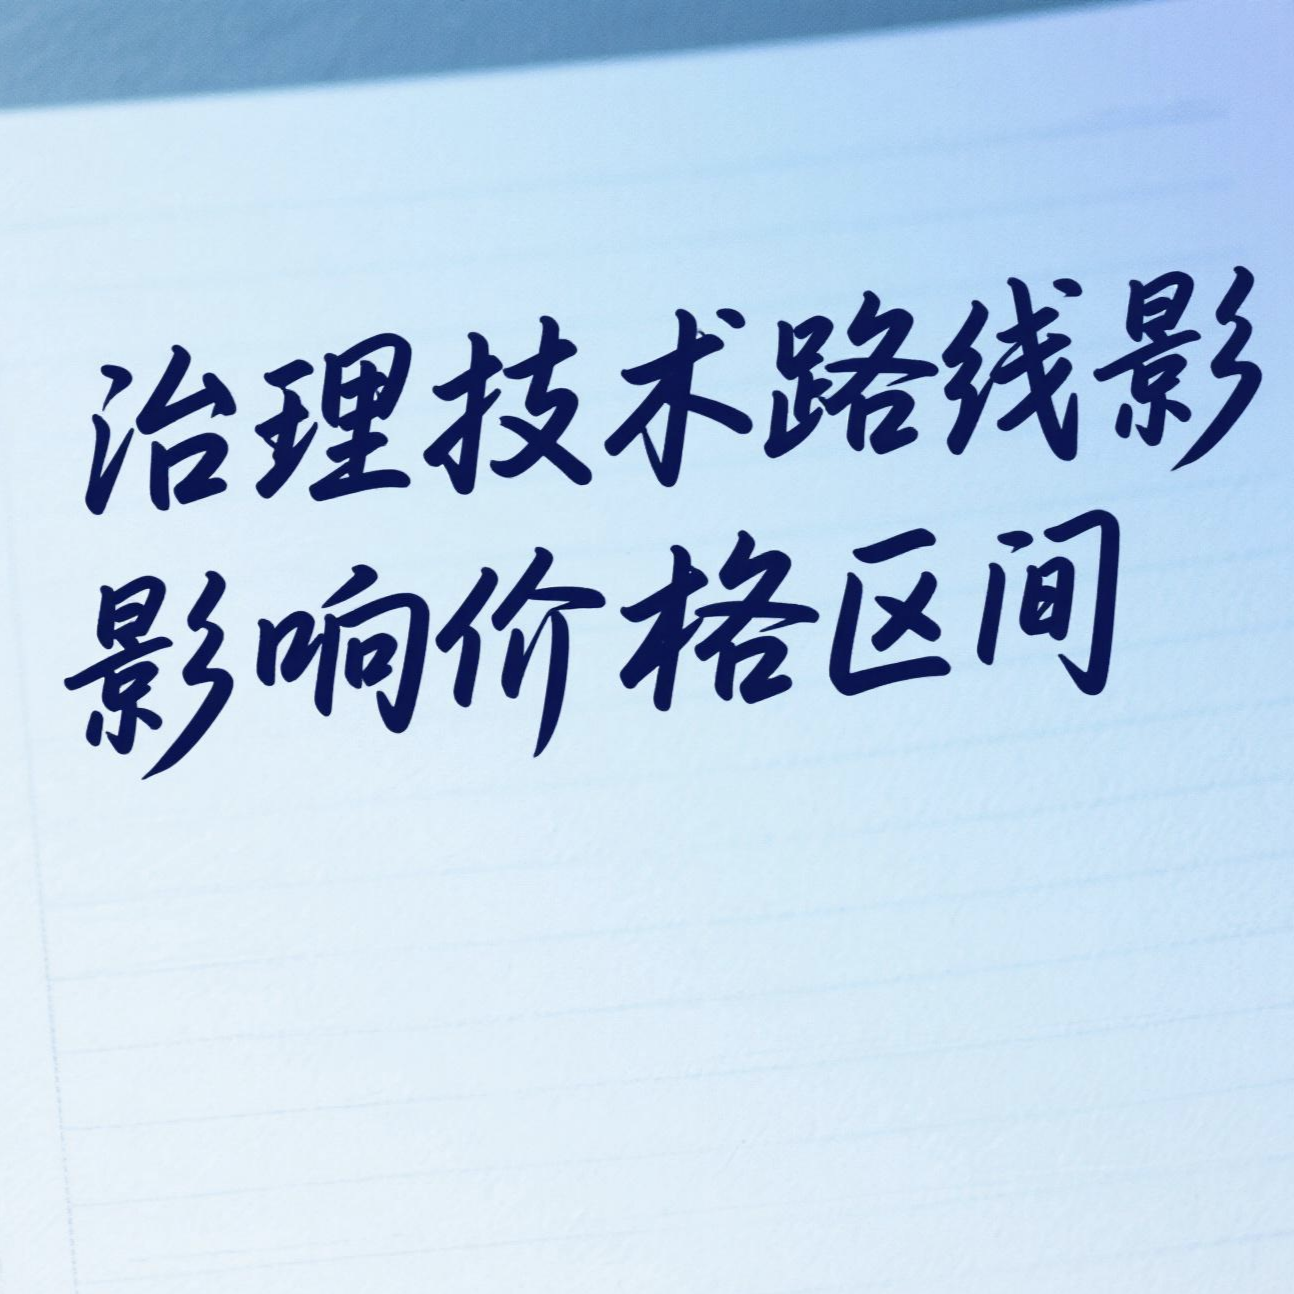 治理技术路线影
影响价格区间